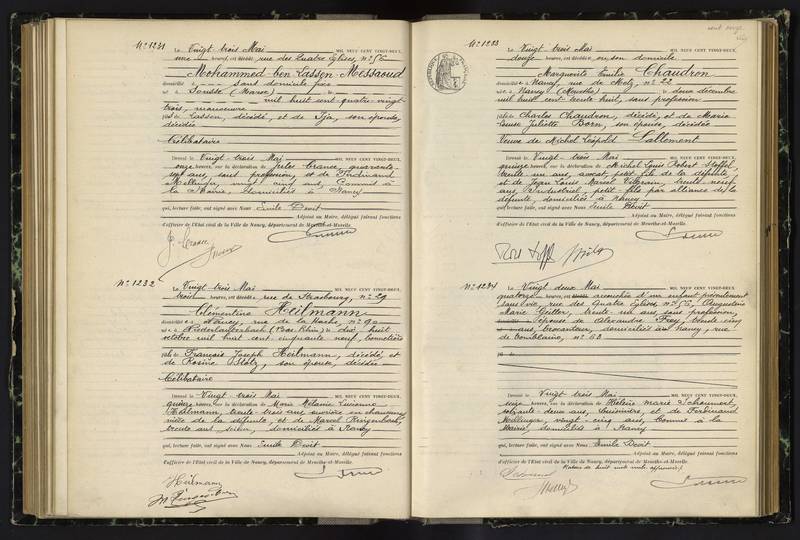 N° 1231
Le Vingt-trois Mai MIL NEUF CENT VINGT-DEUX,
onze heures, est décédé rue des Quatre Eglises, n° 56
Mohammed ben Lassen Messaoud
domicilié sans domicile fixe
né à Sousse (Maroc) le
mil huit cent quatre-vingt
trois, manoeuvre
fils de Lassen, décédé, et de Tja, son épouse,
décédée
Célibataire
Dressé le Vingt-trois Mai MIL NEUF CENT VINGT-DEUX,
onze heures, sur la déclaration de Jules Crance, quarante
sept ans, sans profession, et de Ferdinand
Mellinger, vingt-cinq ans, Commis à
la Mairie, domiciliés à Nancy
qui, lecture faite, ont signé avec Nous Emile Devit
Adjoint au Maire, délégué faisant fonctions
d'officier de l'Etat civil de la Ville de Nancy, département de Meurthe-et-Moselle.
N° 1232
Le Vingt-trois Mai MIL NEUF CENT VINGT-DEUX,
heures, est décédée rue de Strasbourg, n° 29
Clémentine Heilmann
domiciliée à Nancy, rue de la Hache, n° 90
née à Niederlauterbach (Bas Rhin) le dix huit
octobre mil huit cent cinquante neuf,
fille de François Joseph Heilmann, décédé, et
de Rosine Stolz, son épouse, décédée
Célibataire
Dressé le Vingt-trois Mai MIL NEUF CENT VINGT-DEUX,
quinze heures, sur la déclaration de Marie Mélanie Lucienne
Heilmann, trente trois ans, ouvrière en chaussures
nièce de la défunte, et de Marcel
trente ans, domiciliés à Nancy
qui, lecture faite, ont signé avec Nous Emile Devit
Adjoint au Maire, délégué faisant fonctions
d'officier de l'Etat civil de la Ville de Nancy, département de Meurthe-et-Moselle.
Heilmann
N° 1233
Le Vingt-trois Mai MIL NEUF CENT VINGT-DEUX,
douze heures, est décédée en son domicile
Marguerite Emilie Chaudron
domiciliée à Nancy, rue de Metz, n° 22
née à Nancy (Meurthe) le deux décembre
mil huit cent trente huit, sans profession
fille de Charles Chaudron, décédé, et de Marie
Louise Juliette Born, son épouse, décédée
Veuve de Michel Léopold Lallement
Dressé le Vingt-trois Mai MIL NEUF CENT VINGT-DEUX,
quinze heures, sur la déclaration de Michel Louis Robert
trente un ans, avocat, petit fils de la défunte,
et de Jean Louis Marcel trente neuf
ans, Industriel, petit fils par alliance de la
défunte, domiciliés à Nancy
qui, lecture faite, ont signé avec Nous Emile Devit
Adjoint au Maire, délégué faisant fonctions
d'officier de l'Etat civil de la Ville de Nancy, département de Meurthe-et-Moselle.
N° 1234
Le Vingt-deux Mai MIL NEUF CENT VINGT-DEUX,
quatorze heures, est accouchée d'un enfant présentement
sans vie, rue des Quatre Eglises, n° 56, Augustine
Marie trente un ans, sans profession
épouse de Frey, trente cinq
ans, domiciliés à Nancy, rue
de n° 63
fils de
Dressé le Vingt-trois Mai MIL NEUF CENT VINGT-DEUX,
seize heures, sur la déclaration de Hélène Marie
soixante-deux ans, et de Ferdinand
Mellinger, vingt-cinq ans, Commis à la
Mairie, domiciliés à Nancy
qui, lecture faite, ont signé avec Nous Emile Devit
Adjoint au Maire, délégué faisant fonctions
d'officier de l'Etat civil de la Ville de Nancy, département de Meurthe-et-Moselle.